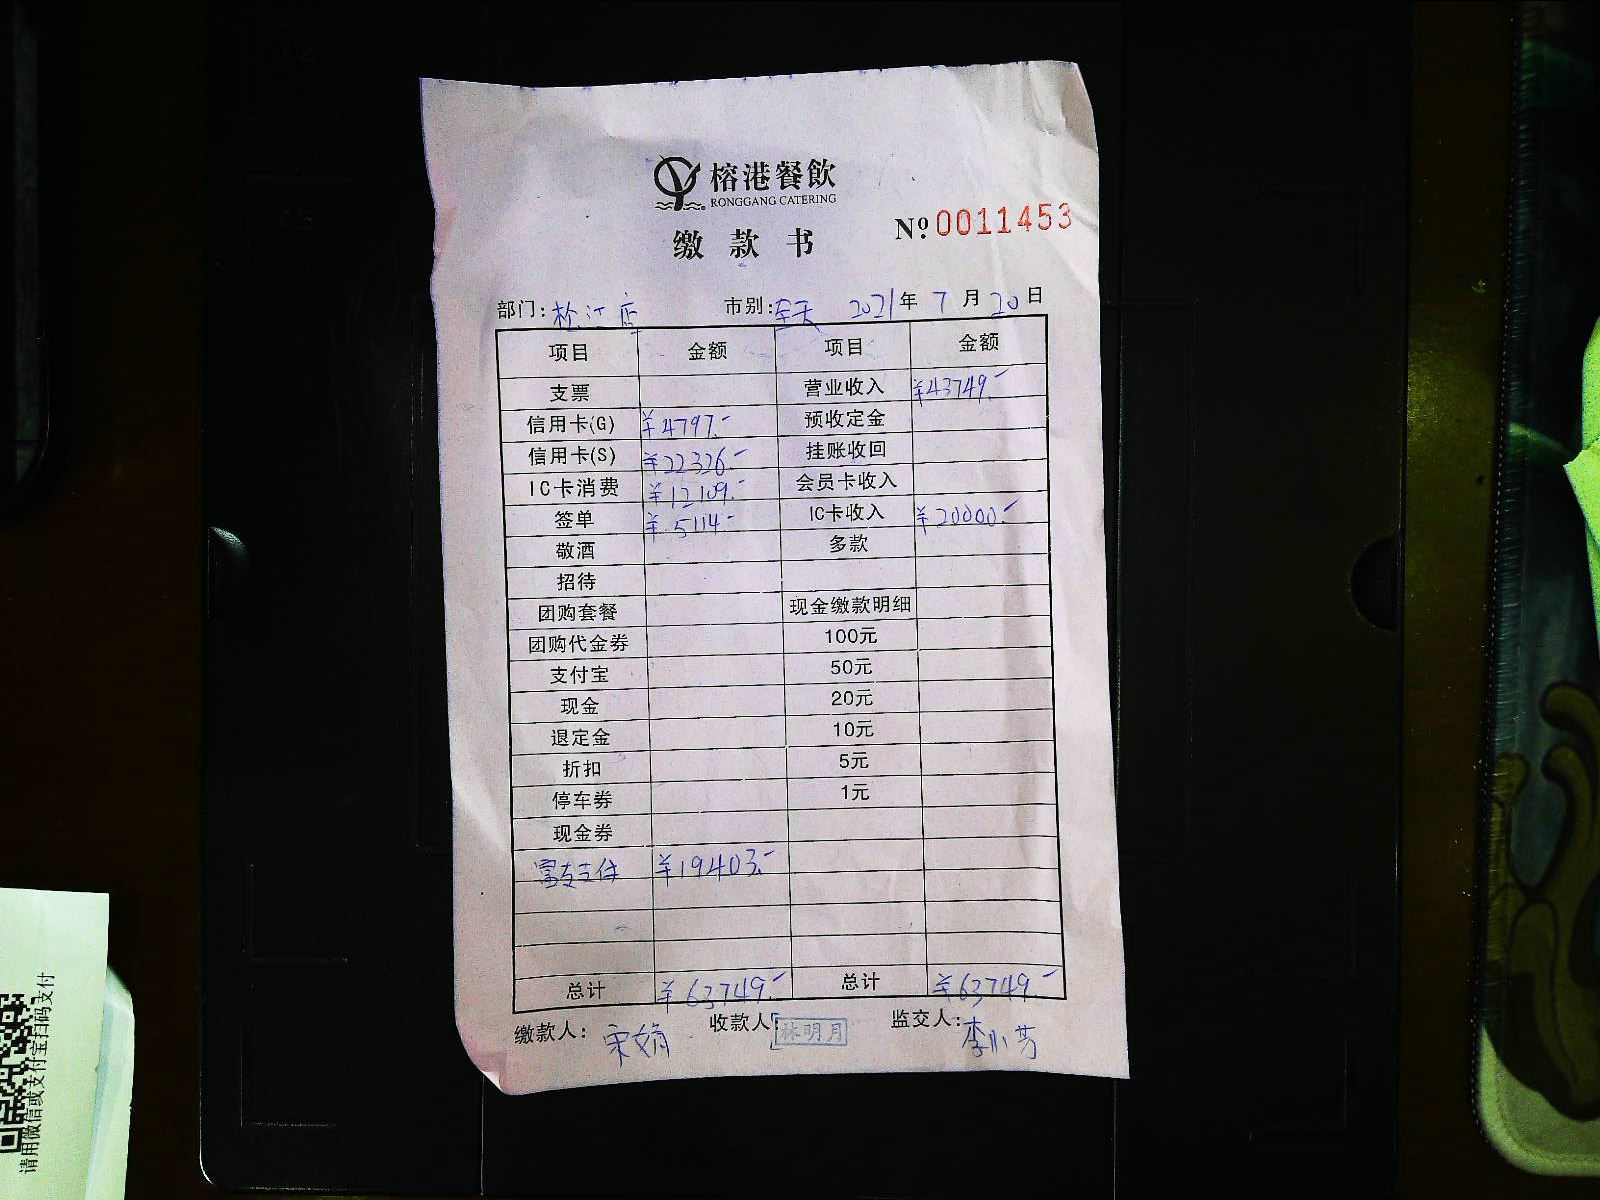 榕港餐飲
RONGGANG CATERING
缴款书
Nº 0011453
部门: 松江店 市别: 全天 2021年7月20日
项目 金额 项目 金额
支票 营业收入 ¥43749.-
信用卡(G) ¥4797.- 预收定金
信用卡(S) ¥22326.- 挂账收回
IC卡消费 ¥12109.- 会员卡收入
签单 ¥5114.- IC卡收入 ¥20000.-
敬酒 多款
招待
团购套餐 现金缴款明细
团购代金券 100元
支付宝 50元
现金 20元
退定金 10元
折扣 5元
停车券 1元
现金券
富友支付 ¥19403.-
总计 ¥63749.- 总计 ¥63749.-
缴款人: 宋娟 收款人: 林明月 监交人: 李小芳
请用微信或支付宝扫码支付